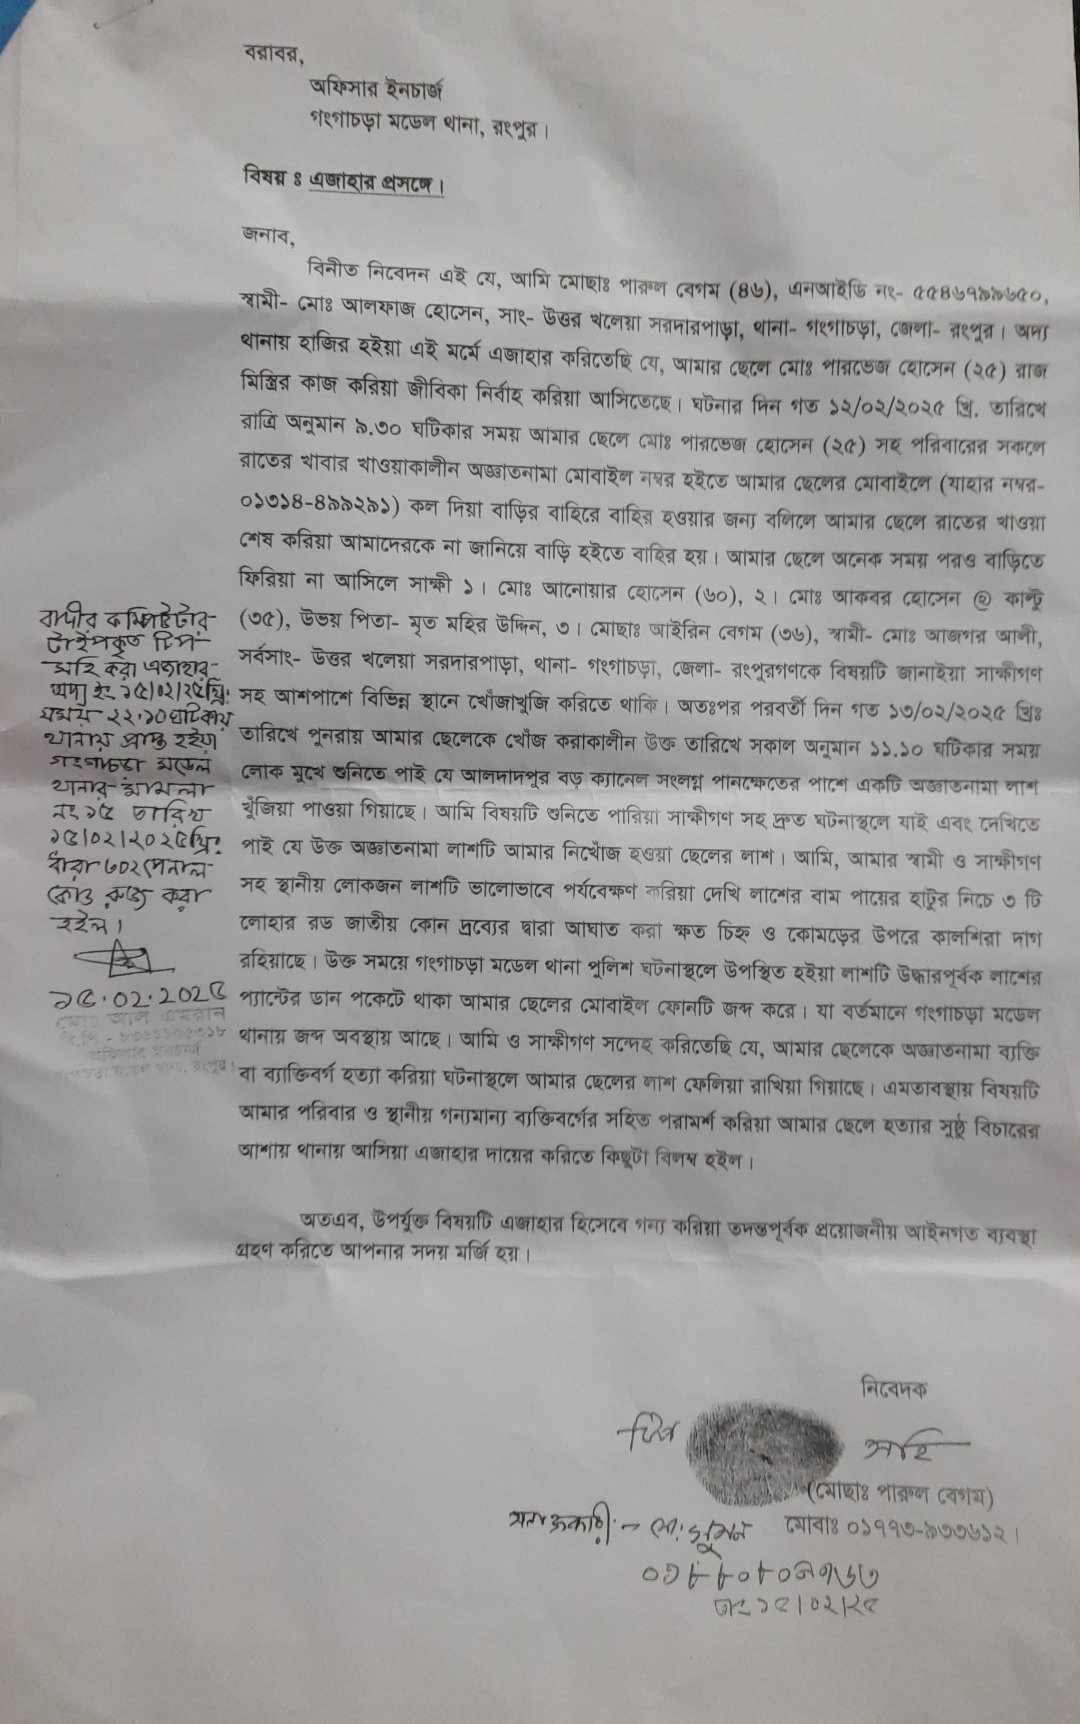 বরাবর,
অফিসার ইনচার্জ
গংগাচড়া মডেল থানা, রংপুর।
বিষয় ঃ এজাহার প্রসঙ্গে।
জনাব,
বিনীত নিবেদন এই যে, আমি মোছাঃ পারুল বেগম (৪৬), এনআইডি নং- ৫৫৪৬৭৯৯৬৫০,
স্বামী- মোঃ আলফাজ হোসেন, সাং- উত্তর খলেয়া সরদারপাড়া, থানা- গংগাচড়া, জেলা- রংপুর। অদ্য
থানায় হাজির হইয়া এই মর্মে এজাহার করিতেছি যে, আমার ছেলে মোঃ পারভেজ হোসেন (২৫) রাজ
মিস্ত্রির কাজ করিয়া জীবিকা নির্বাহ করিয়া আসিতেছে। ঘটনার দিন গত ১২/০২/২০২৫ খ্রি. তারিখে
রাত্রি অনুমান ৯.৩০ ঘটিকার সময় আমার ছেলে মোঃ পারভেজ হোসেন (২৫) সহ পরিবারের সকলে
রাতের খাবার খাওয়াকালীন অজ্ঞাতনামা মোবাইল নম্বর হইতে আমার ছেলের মোবাইলে (যাহার নম্বর-
০১৩১৪-৪৯৯২৯১) কল দিয়া বাড়ির বাহিরে বাহির হওয়ার জন্য বলিলে আমার ছেলে রাতের খাওয়া
শেষ করিয়া আমাদেরকে না জানিয়ে বাড়ি হইতে বাহির হয়। আমার ছেলে অনেক সময় পরও বাড়িতে
ফিরিয়া না আসিলে সাক্ষী ১। মোঃ আনোয়ার হোসেন (৬০), ২। মোঃ আকবর হোসেন @ কাল্টু
(৩৫), উভয় পিতা- মৃত মহির উদ্দিন, ৩। মোছাঃ আইরিন বেগম (৩৬), স্বামী- মোঃ আজগর আলী,
সর্বসাং- উত্তর খলেয়া সরদারপাড়া, থানা- গংগাচড়া, জেলা- রংপুরগণকে বিষয়টি জানাইয়া সাক্ষীগণ
সহ আশপাশে বিভিন্ন স্থানে খোঁজাখুজি করিতে থাকি। অতঃপর পরবর্তী দিন গত ১৩/০২/২০২৫ খ্রিঃ
তারিখে পুনরায় আমার ছেলেকে খোঁজ করাকালীন উক্ত তারিখে সকাল অনুমান ১১.১০ ঘটিকার সময়
লোক মুখে শুনিতে পাই যে আলদাদপুর বড় ক্যানেল সংলগ্ন পানক্ষেতের পাশে একটি অজ্ঞাতনামা লাশ
খুঁজিয়া পাওয়া গিয়াছে। আমি বিষয়টি শুনিতে পারিয়া সাক্ষীগণ সহ দ্রুত ঘটনাস্থলে যাই এবং দেখিতে
পাই যে উক্ত অজ্ঞাতনামা লাশটি আমার নিখোঁজ হওয়া ছেলের লাশ। আমি, আমার স্বামী ও সাক্ষীগণ
সহ স্থানীয় লোকজন লাশটি ভালোভাবে পর্যবেক্ষণ করিয়া দেখি লাশের বাম পায়ের হাটুর নিচে ৩ টি
লোহার রড জাতীয় কোন দ্রব্যের দ্বারা আঘাত করা ক্ষত চিহ্ন ও কোমড়ের উপরে কালশিরা দাগ
রহিয়াছে। উক্ত সময়ে গংগাচড়া মডেল থানা পুলিশ ঘটনাস্থলে উপস্থিত হইয়া লাশটি উদ্ধারপূর্বক লাশের
প্যান্টের ডান পকেটে থাকা আমার ছেলের মোবাইল ফোনটি জব্দ করে। যা বর্তমানে গংগাচড়া মডেল
থানায় জব্দ অবস্থায় আছে। আমি ও সাক্ষীগণ সন্দেহ করিতেছি যে, আমার ছেলেকে অজ্ঞাতনামা ব্যক্তি
বা ব্যাক্তিবর্গ হত্যা করিয়া ঘটনাস্থলে আমার ছেলের লাশ ফেলিয়া রাখিয়া গিয়াছে। এমতাবস্থায় বিষয়টি
আমার পরিবার ও স্থানীয় গন্যমান্য ব্যক্তিবর্গের সহিত পরামর্শ করিয়া আমার ছেলে হত্যার সুষ্ঠু বিচারের
আশায় থানায় আসিয়া এজাহার দায়ের করিতে কিছুটা বিলম্ব হইল।
অতএব, উপর্যুক্ত বিষয়টি এজাহার হিসেবে গন্য করিয়া তদন্তপূর্বক প্রয়োজনীয় আইনগত ব্যবস্থা
গ্রহণ করিতে আপনার সদয় মর্জি হয়।
বাদীর কম্পিউটার
টাইপকৃত টিপ
সহি করা এজাহার
অদ্য ইং ১৫/০২/২৫খ্রি:
সময় ২২.১০ ঘটিকায়
থানায় প্রাপ্ত হইয়া
গংগাচড়া মডেল
থানার মামলা
নং ১৫ তারিখ
১৫/০২/২০২৫খ্রি:
ধারা ৩০২ পেনাল
কোড রুজু করা
হইল।
১৫.০২.২০২৫
নিবেদক
টিপ সহি
(মোছাঃ পারুল বেগম)
মোবাঃ ০১৭৭৩-৯৩৩৬১২।
সনাক্তকারী:- মো: সুমন
তাং ১৫/০২/২৫